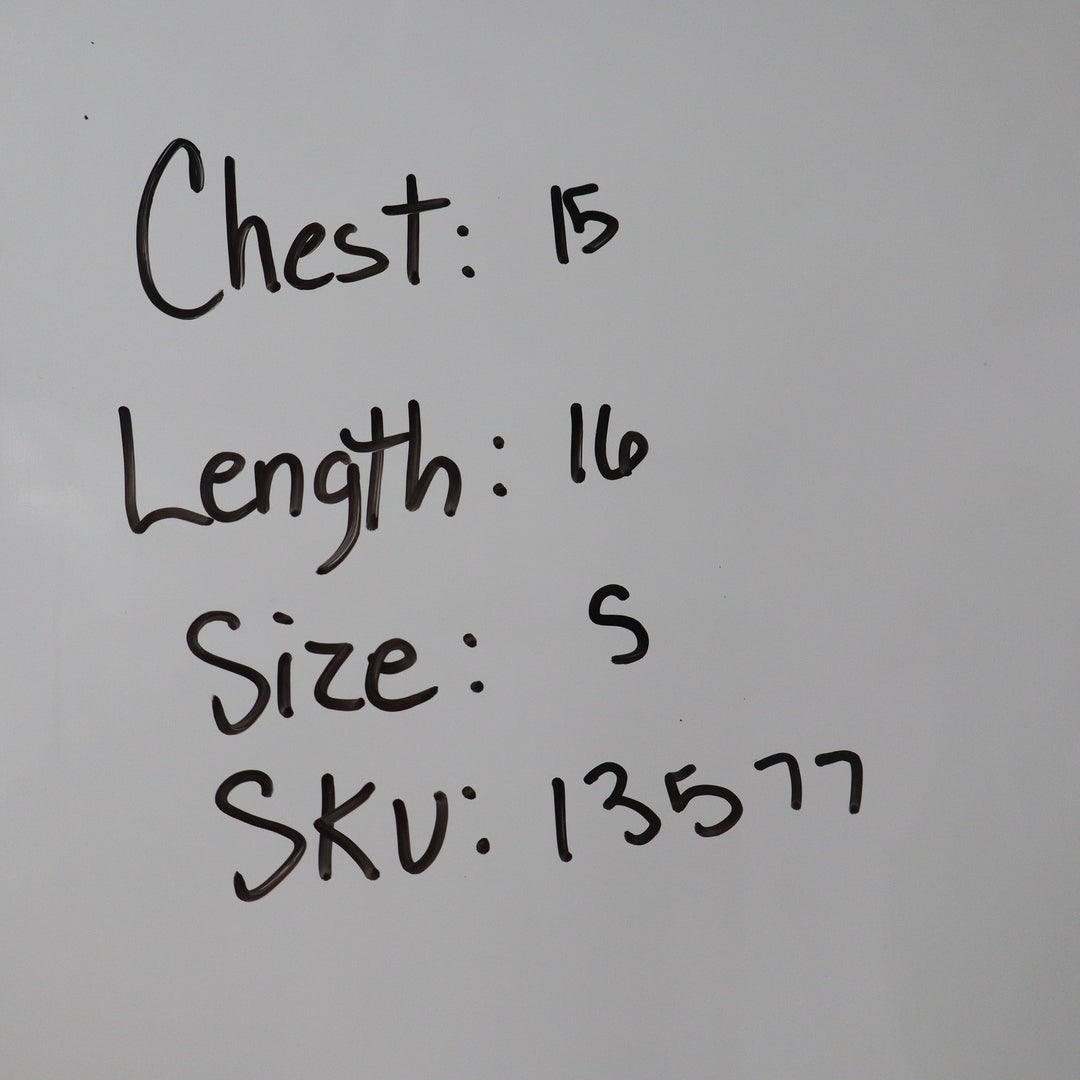 Chest: 15
Length: 16
Size: S
SKU: 13577